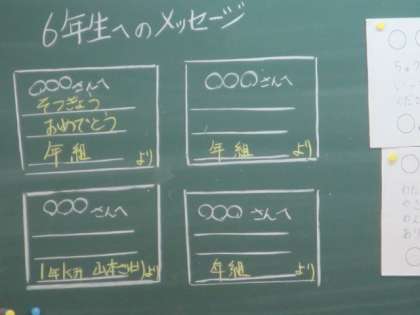 6年生へのメッセージ
○○○さんへ
そつぎょう
おめでとう
年 組 より
○○○さんへ
年 組 より
○○○さんへ
1年 山本 より
○○○さんへ
年 組 より